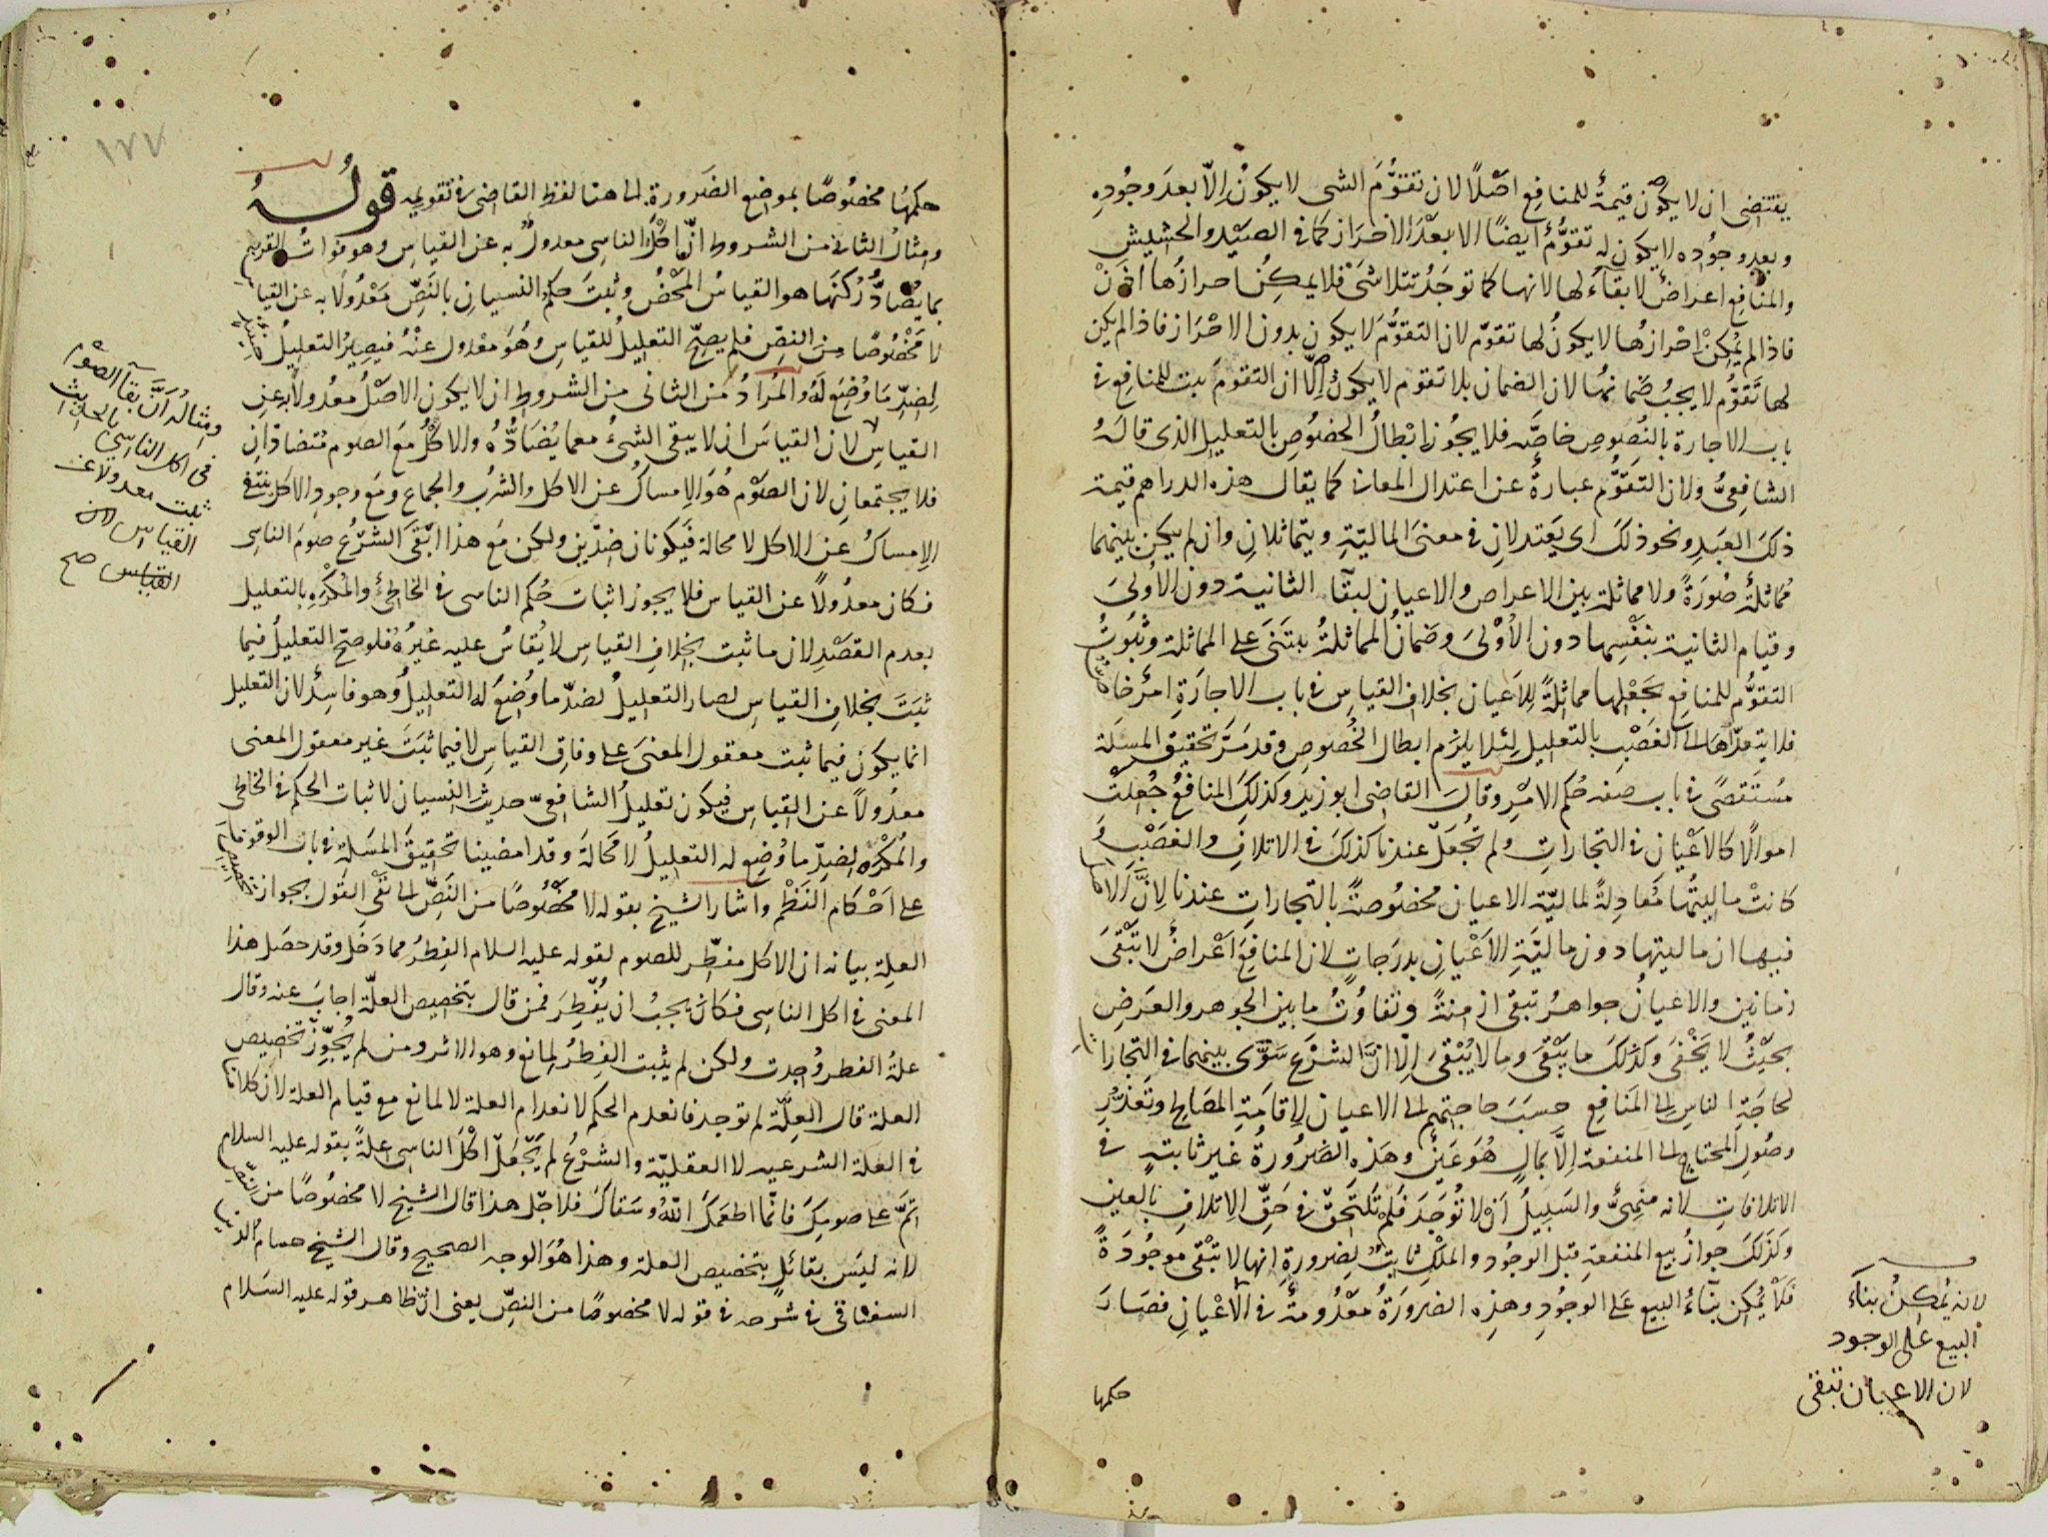 يقتضى ان لا يكون قيمةٌ للمنافع اصْلًا لان تقوُّمَ الشى لا يكونُ اِلّا بعدَ وجُودِهِ
وبعد وجُوده لا يكون له تقوُّمٌ ايضًا الا بعدَ الاحْرَاز كما فى الصَيْد والحشيشِ
والمنافع اعراضٌ لا بقاءَ لها لانها كما توجَدُ تتلاشَىْ فلا يمكِنُ احرازُها اذَنْ
فاذا لم يُمكِنْ احْرازُها لا يكونُ لها تقوّم لان التقوُّمَ لا يكون بدون الاحْرَاز فاذا لم يكن
لها تَقوُّم لا يجبُ ضَمانُها لان الضمان بلا تقوم لا يكونُ اِلّا ان التقومَ ثبت للمنافع فى
باب الاجارة بالنُصُوصِ خاصَّه فلا يجُوز ابْطالُ الخصُوصِ بالتعليل الذى قالَهُ
الشافعىُّ ولان التَقوُّم عبارةٌ عن اعتدال المعانى كما يقال هذه الدراهم قيمة
ذلكَ العَبدِ ونحو ذلكَ اى يَعتدلانِ فى معنىَ الماليّةِ ويتماثلانِ وان لم يكن بينهما
مُماثلةٌ صُورَةً ولا مماثلة بين الاعراض والاعيان لبقآء الثانية دون الأولىَ
وقيام الثانية بنفْسِها دون الاُوْلىَ وضَمانُ المماثلةُ يبتَنىَ على المماثلة وثُبُوتُ
التقوُّم للمنافع بجَعْلِها مماثلةً للاَعيان بخلاف القياسِ فى باب الاِجارَةِ امرٌ خاصٌّ
فلا يتعدّاها الى الغَصْبِ بالتعليل لِئلا يلزَم ابطال الخُصُوصِ وقد مَرَّ تحقيق المسئلة
مُسْتَقصًى فى باب صفه حُكم الامْرِ وقالَ القاضى ابو زيد وكذلكَ المنافعُ جُعِلتْ
اموالًا كالاعْيَان فى التجاراتِ ولم تُجْعَلْ عندنا كذلكَ فى الاتلافِ والغصْبِ و
كانتْ ماليتُها مُعادِلةً لماليّة الاعيان مخصُوصةً بالتجاراتِ عندنا لِاَنَّ الاصل
فيها ان ماليتها دون ماليَّةِ الاَعْيانِ بدرَجاتٍ لان المنافعَ اَعْراضٌ لا تَبْقىَ
زمانين والاعيانُ جواهرُ تبقى ازمنةً وتفاوُتُ ما بين الجوهر والعرَضِ
بحيْثُ لا يَخْفىَ وكذلكَ ما يَبْقىَ وما لا يُبْقىَ اِلّا انَّ الشرْعَ سَوَّى بينهما فى التجارات
لحاجَةِ الناسِ الى المنَافع حسَبَ حاجتهم الى الاعيان لاِقامَةِ المصَالح وتَعَذُّرِ
وصُولِ المحتاج الى المنفعة اِلَّا بمالٍ هُوَ عَينٌ وهَذه الضرُورةُ غير ثابتةٍ فى
الاتلافاتِ لانه منهىٌّ والسَبيلُ اَنْ لا تُوجَدَ فَلمْ تَلتَحِقْ فى حَقِّ الاِتلافِ بالعين
وكذَلكَ جوازُ بيع المنفعةِ قبل الوجُود والملكِ ثابتٌ لِضرورةِ انها لا تبْقى موجُودَةً
فَلا يُمْكِن بنآءُ البيع عَلى الوجُودِ وهذِه الضرورَةُ معْدُومةٌ فى الاَعْيانِ فصَارَ
حكمها
لانه يُمكِنُ بناءُ
البيع على الوجود
لان الاعيان تبقى
١٧٧
حكمهَا مخصُوصًا بموضِع الضَرورة الى هنا لفظ القاضى فى تقويمه قولُهُ
ومثالُ الثانى من الشروط انّ اكْلَ الناسى معدولٌ به عن القياسِ وهو فواتُ القربة
بما يُضادُّ رُكنَها هو القياسُ المحْضُ وثبتَ حكمُ النسيان بالنَصِّ مَعْدُولًا به عن القياس
لا مَخْصُوصًا مِنَ النصّ فلم يصِحّ التعليلُ للقياسِ وهُوَ معْدول عنْهُ فيصِيرُ التعليلُ حينئذٍ
لِضِدِّ مَا وُضِعَ لَهُ والمُرَادُ مِنَ الثانى مِنَ الشروطِ ان لا يكون الاصْلُ معْدُولًا به عن
القياسِ لان القياسَ ان لا يبقى الشىءُ مع ما يُضَادُّهُ والاكْلُ مَعَ الصوم مُتضادّانِ
فلا يجتمعان لان الصَوْم هُوَ الاِمساكُ عن الاكل والشرب والجماعِ ومَع وجودِ الاكل ينتفى
الاِمساكُ عن الاكل لا محالة فيَكونان ضدّين ولكن مَع هذا ابْقىَ الشرْعُ صومَ الناسِى
فكان معدُولاً عن القياس فلا يجوز اثبات حُكم الناسى فى الخاطئ والمُكْرَهِ بالتعليل
بعدم القصْدِ لان ما ثبت بخلافِ القياسِ لا يُقاسُ عليه غيرُهُ فلو صحّ التعليلُ فيما
ثبَتَ بخلافِ القياسِ لصار التعليلُ لضدّ ما وُضِعَ له التعليلُ وهو فاسِدٌ لان التعليل
انما يكون فيما ثبت معقول المعنىَ على وفاقِ القياسِ لا فيما ثبتَ غير معقول المعنى
معدُولاً عن القياسِ فيكون تعليلُ الشافعىّ حديثَ النسيان لاثبات الحكم فى الخاطئ
والمُكْرَه لِضِدِّ ما وُضِع له التعليلُ لا محَالةَ وقد امضينا تحقيقَ المسَلة فى باب الوقوف
على اَحْكام النَظْم واشار الشيخ بقوله لا مَخْصُوصًا من النَصِّ الى نفْى القَول بجواز تخصيص
العلة بيانه ان الاكل مفطّر للصوم لقوله عليه السلام الفِطرُ مما دَخَل وقد حصَل هذا
المعنى فى اكل الناسِى فكان يجبُ ان يُفْطِرَ فمن قال بتخصيص العلّة اجابَ عنه وقال
علةُ الفطر وُجِدت ولكن لم يثبت الفِطرُ لِمانع وهو الاثر ومن لم يُجوِّزْ تخصيص
العلة قال العِلّة لم توجد فانعدم الحكم لانعدام العلة لا لمانع مع قيام العلة لان كلامنا
فى العلة الشرعيه لا العقليّة والشرْعُ لم يَجْعَل اكْلَ الناسى علةً بقوله عليه السلام
اتمَّ على صومِكَ فانّما اطعمَكَ اللّهُ وسَقاكَ فلاجْل هذا قال الشيخ لا مخصُوصًا من النصّ
لانه ليَس بقائلٍ بتخصيص العلة وهذا هُوَ الوجه الصحيح وقال الشيخ حسام الدين
السغناقى فى شرحه فى قوله لا مخصوصًا من النصِّ يعنى انّ ظاهر قوله عليه السَلام
ومثالُه اَنَّ بقآ الصوْم
فى اكل الناسِى بالحديث
ثبت معدولا عن
القياس لان
القياس صح